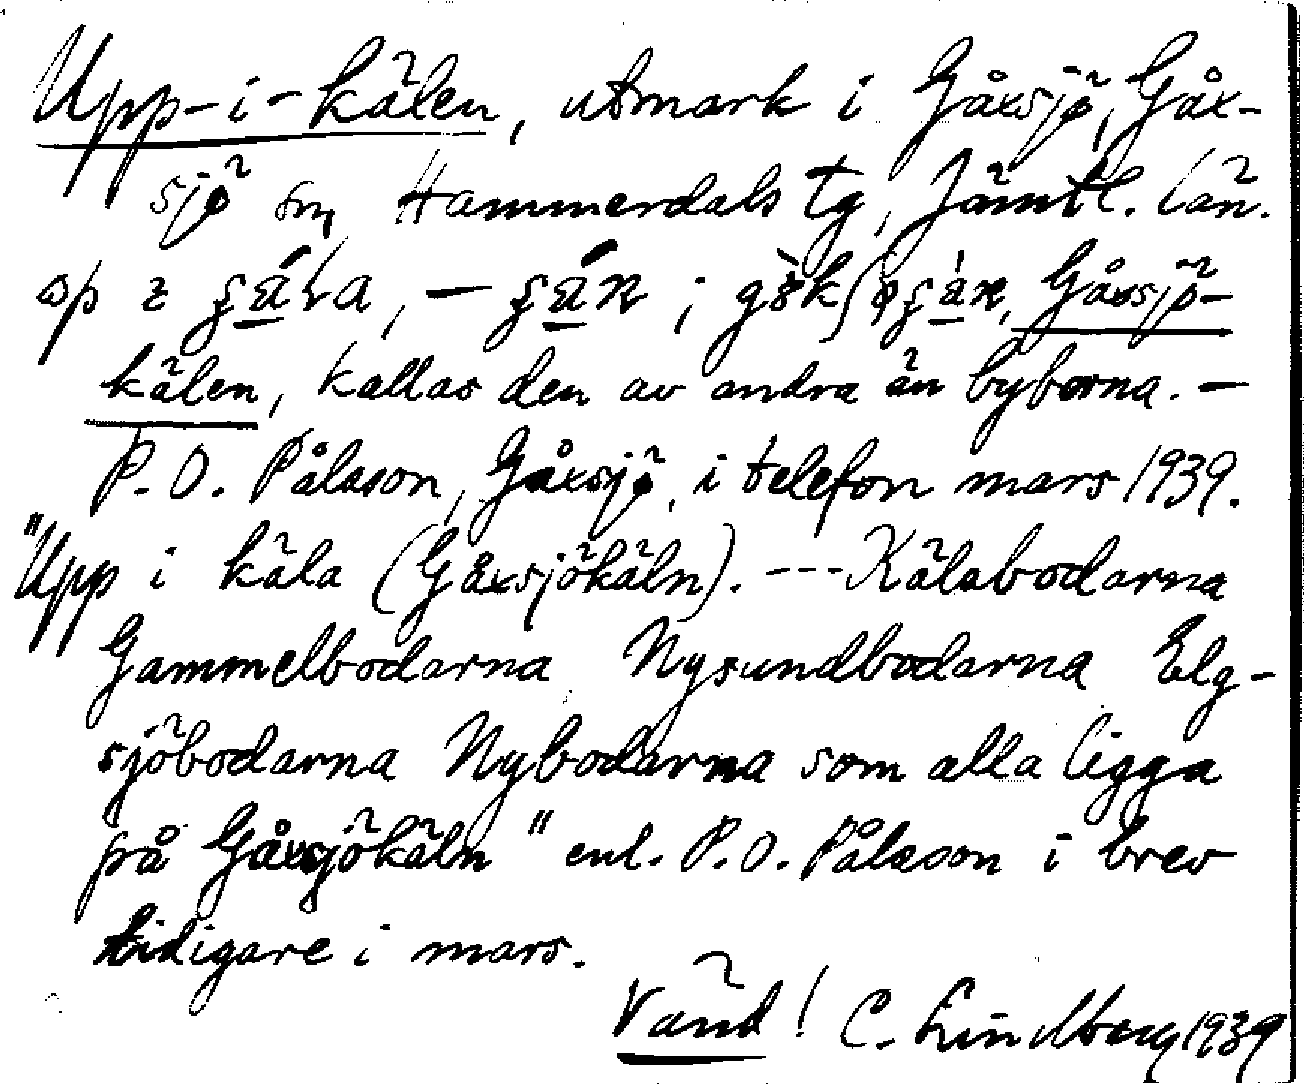 Upp-i-kälen, utmark i Gåxsjö, Gåx-
sjö sn, Hammerdals tg, Jämtl. län.
kälen, kallas den av andra än byborna. —
P. O. Pålsson, Gåxsjö, i telefon mars 1939.
"Upp i käla (Gåxsjökäln). --- Kälabodarna
Gammelbodarna Nysundbodarna Elg-
sjöbodarna Nybodarna som alla ligga
på Gåxsjökäln" enl. P. O. Pålsson i brev
tidigare i mars.
Vänd! C. Lindberg 1939